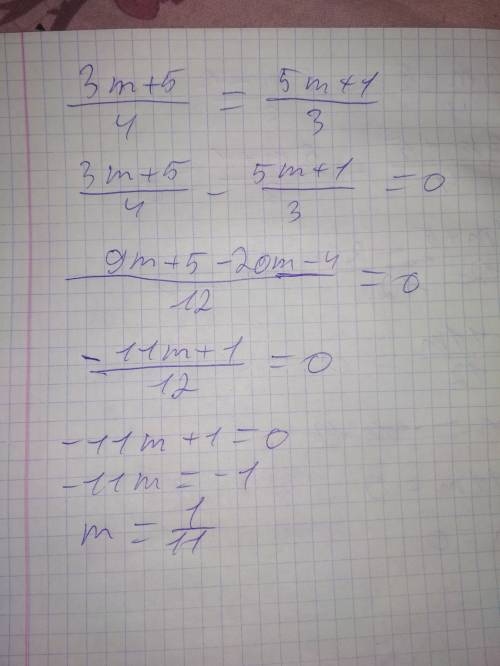 3m+5/4 = 5m+1/3
3m+5/4 - 5m+1/3 = 0
9m+5-20m-4/12 = 0
-11m+1/12 = 0
-11m+1=0
-11m=-1
m=1/11